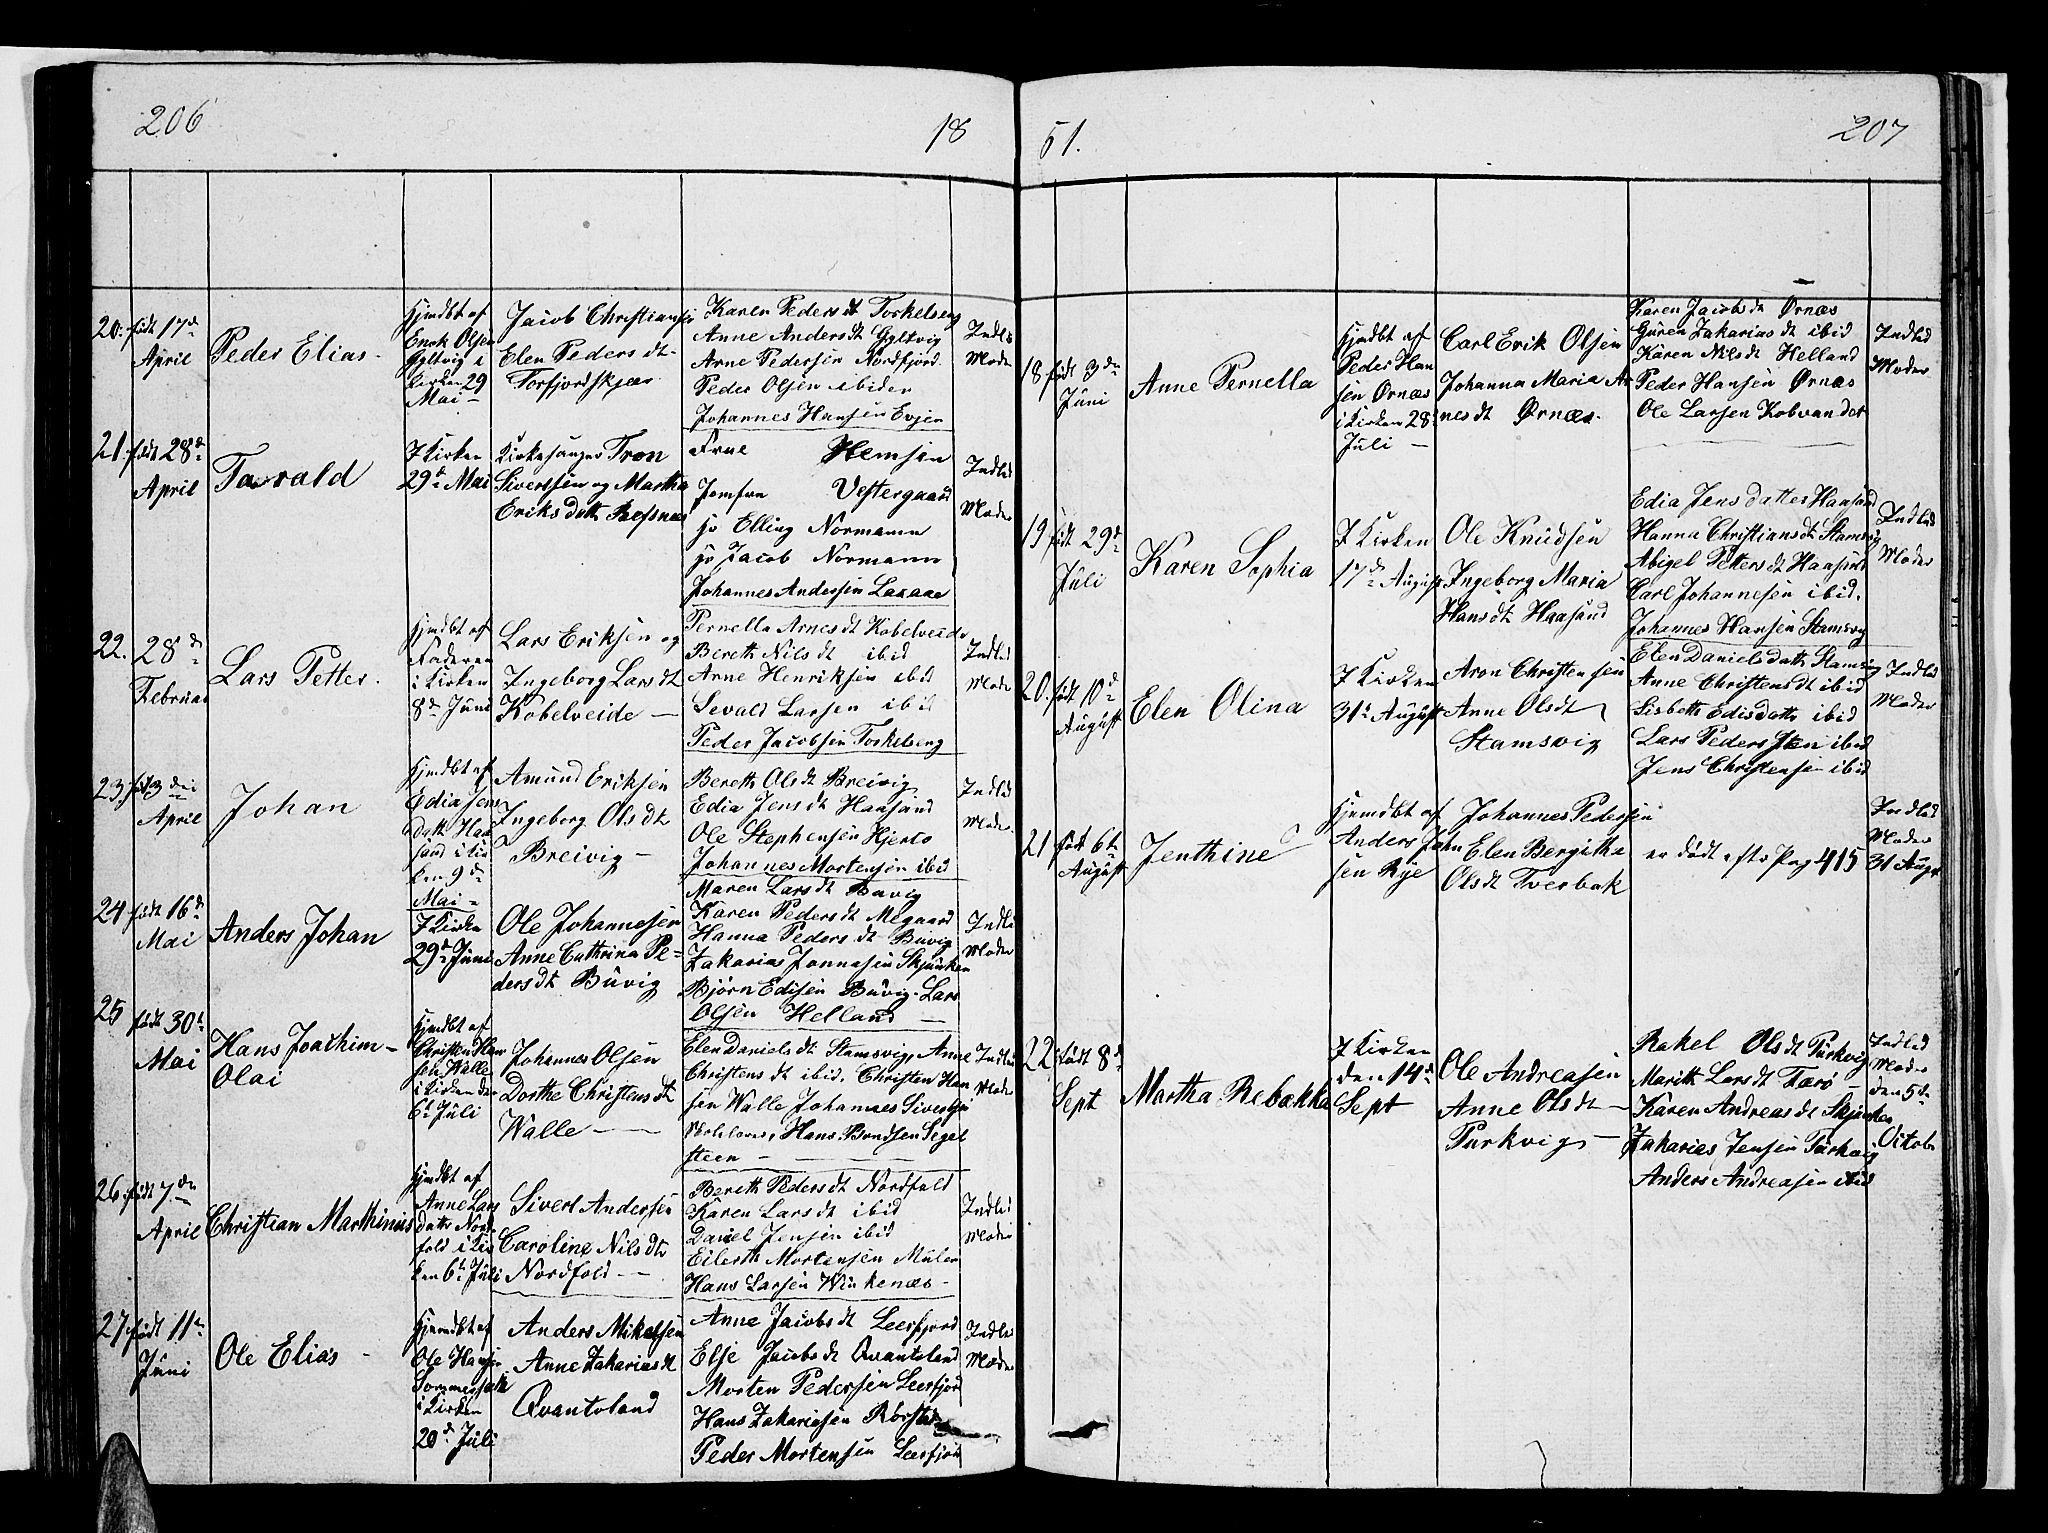 206
18
20. født 17de April
Peder Elias.
Hjmdbt af
Enok Olsen
Gyltvig i
Kirken 29
Mai
Jacob Christiansen
Elen Pedersdt
Torfjordskjær
Karen Pedersdt Torkelseng
Anne Andersdt Gyltvig
Arne Pedersen Nordfjord
Peder Olsen ibiden
Johannes Hansen Evjen
Indled
Moder
21. født 28de April
Torvald
I Kirken
29de Mai
Kirkesanger Tron
Sivertsen og Martha
Eriksdatt Røsnes
Frue Hemsen
Jomfru Vestergaard
Hr Elling Normann
Hr Jacob Normann
Johannes Andersen Laxaae
Indled
Moder
22. 28de Februar
Lars Petter.
Hjmdbt af
Faderen
i Kirken
8de Juni
Lars Eriksen og
Ingeborg Larsdt
Kobelveide
Pernella Arnesdt Kobelveide
Bereth Nilsdt ibid
Anne Henriksen ibd
Sevald Larsen ibid
Peder Jacobsen Torkelseng
Indled
Moder
23. født 3die April
Johan
Hjmdbt af
Edia Jens
datt Haa
sand i Kir
ken 9de
Mai
Amund Eriksen
Ingeborg Olsdt
Breivig
Bereth Olsdt Breivig
Edia Jensdt Haasand
Ole Stephensen Hjertø
Johannes Mortensen ibid
Indled
Moder
24 født 16de Mai
Anders Johan
I Kirken
29de Juni
Ole Johannesen
Anne Cathrina Pe-
dersdt Buvig
Maren Larsdt Buvig
Karen Pedersdt Megaard
Hanna Pedersdt Buvig
Zakarias Jonnasen Skjunken
Bjørn Edisen Buvig. Lars
Olsen Helland
Indled
Moder
25 født 30te Mai
Hans Joachim
Olai
Hjmdbt af
Christen Han
sen Walle
i Kirken den
6te Juli
Johannes Olsen
Dorthe Christensdt
Walle
Elen Danielsdt Stamsvig, Anne
Christensdt ibid. Christen Han
sen Walle Johannes Sivertsen
Hans Bondsen Segel
steen
Indled
Moder
26. født 7de April
Christian Marthinus
Hjmdbt af
Anne Lars
datt Nord
fold i Kir
ken 6te Juli
Sivert Andersen
Caroline Nilsdt
Nordfold
Bereth Pedersdt Nordfold
Karen Larsdt ibid
Daniel Jensen ibid
Eilerth Mortensen Mulen
Hans Larsen Vinkenæs
Indled
Moder
27. født 11te Juni
Ole Elias
Hjemdbt af
Ole Hansen
Sommersæth
i Kirken
20de Juli
Anders Mikelsen
Anne Zakariasdt
Qvantoland
Anne Jacobsdt Leerfjord
Else Jacobsdt Qvantoland
Morten Pedersen Leerfjord
Hans Zakariasen Rørstad
Peder Mortensen Leerfjord
Indled
Moder
51.
207
18 født 3de Juni
Anne Pernella
Hjmdbt af
Peder Han
sen Ørnæs
i Kirken 28de
Juli
Carl Erik Olsen
Johanna Maria Ar
nesdt Ørnæs.
Karen Jacobsdt Ørnæs
Guren Zakariasdt ibid
Karen Nilsdt Helland
Peder Hansen Ørnæs
Ole Larsen Kobvandet
Indled
Moder
19 født 29de Juli
Karen Sophia
I Kirken
17de August
Ole Knudsen
Ingeborg Maria
Hansdt Haasand
Edia Jensdatter Haasand
Hanna Christiansdt Stamsvig
Abigel Pettersdt Haasand
Carl Johannesen ibid.
Johannes Hansen Stamsvig
Indled
Moder
20. født 10de August
Elen Olina
I Kirken
31te August
Aron Christensen
Anne Olsdt
Stamsvig
Elen Danielsdatt Stamsvig
Anne Christensdt ibid
Lisbeth Edisdatt ibid
Lars Pedersen ibid
Jens Christensen ibid
Indled
Moder
21 født 6te August
Jenthine
Hjemdbt af
Anders Jahn
sen Rye
Johannes Pedersen
Elen Bergitha
Olsdt Tverbak
er død efter Pag 415
Indled
Moder
31 Augs
22 født 8de Sept
Martha Rebækka
I Kirken
den 14de
Sept
Ole Andreasen
Anne Olsdt
Purkvig
Rakel Olsdt Purkvig
Marith Larsdt Færø
Karen Andreasdt Skjunken
Zakarias Jensen Purkvig
Anders Andreasen ibid
Indled
Moder
den 5de
Octob